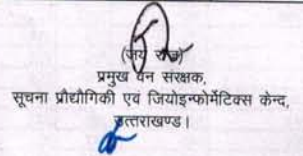 (जय राज)
प्रमुख वन संरक्षक,
सूचना प्रौद्योगिकी एवं जियोइन्फोर्मेटिक्स केन्द,
उत्तराखण्ड।